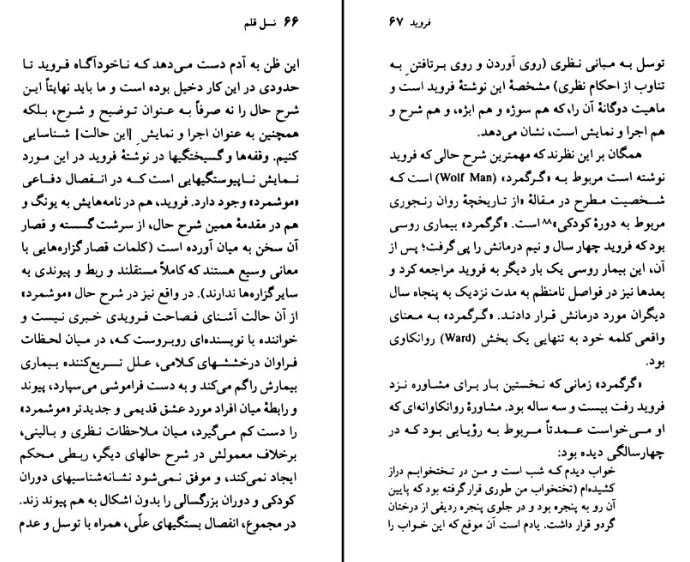 ۶۶ نسل قلم
این ظن به آدم دست می‌دهد که ناخودآگاه فروید تا
حدودی در این کار دخیل بوده است و ما باید نهایتاً این
شرح حال را نه صرفاً به عنوان توضیح و شرح، بلکه
همچنین به عنوان اجرا و نمایشِ [این حالت] شناسایی
کنیم. وقفه‌ها و گسیختگیها در نوشتهٔ فروید در این مورد
نمایش ناپیوستگیهایی است که در انفصال دفاعی
«موشمرد» وجود دارد. فروید، هم در نامه‌هایش به یونگ و
هم در مقدمهٔ همین شرح حال، از سرشت گسسته و قصار
آن سخن به میان آورده است (کلمات قصار گزاره‌هایی با
معانی وسیع هستند که کاملاً مستقلند و ربط و پیوندی به
سایر گزاره‌ها ندارند). در واقع نیز در شرح حال «موشمرد»
از آن حالت آشنای فصاحت فرویدی خبری نیست و
خواننده با نویسنده‌ای روبروست که، در میان لحظات
فراوان درخششهای کلامی، علل تسریع‌کننده بیماری
بیمارش راگم می‌کند و به دست فراموشی می‌سپارد، پیوند
و رابطهٔ میان افراد مورد عشق قدیمی و جدیدتر «موشمرد»
را دست کم می‌گیرد، میان ملاحظات نظری و بالینی،
برخلاف معمولش در شرح حالهای دیگر، ربطی محکم
ایجاد نمی‌کند، و موفق نمی‌شود نشانه‌شناسیهای دوران
کودکی و دوران بزرگسالی را بدون اشکال به هم پیوند زند.
در مجموع، انفصال بستگیهای علّی، همراه با توسل و عدم
فروید ۶۷
توسل به مبانی نظری (روی آوردن و روی برتافتنِ به
تناوب از احکام نظری) مشخصهٔ این نوشتهٔ فروید است و
ماهیت دوگانهٔ آن را، که هم سوژه و هم ابژه، و هم شرح و
هم اجرا و نمایش است، نشان می‌دهد.
همگان بر این نظرند که مهمترین شرح حالی که فروید
نوشته است مربوط به «گرگمرد» (Wolf Man) است که
شخصیت مطرح در مقالهٔ «از تاریخچهٔ روان رنجوری
مربوط به دورهٔ کودکی»۸۸ است. «گرگمرد» بیماری روسی
بود که فروید چهار سال و نیم درمانش را پی گرفت؛ پس از
آن، این بیمار روسی یک بار دیگر به فروید مراجعه کرد و
بعدها نیز در فواصل نامنظم به مدت نزدیک به پنجاه سال
دیگران مورد درمانش قرار دادند. «گرگمرد» به معنای
واقعی کلمه خود به تنهایی یک بخش (Ward) روانکاوی
بود.
«گرگمرد» زمانی که نخستین بار برای مشاوره نزد
فروید رفت بیست و سه ساله بود. مشاورهٔ روانکاوانه‌ای که
او می‌خواست عمدتاً مربوط به رؤیایی بود که در
چهارسالگی دیده بود:
خواب دیدم که شب است و من در تختخوابم دراز
کشیده‌ام (تختخواب من طوری قرار گرفته بود که پایین
آن رو به پنجره بود و در جلوی پنجره ردیفی از درختان
گردو قرار داشت. یادم است آن موقع که این خواب را